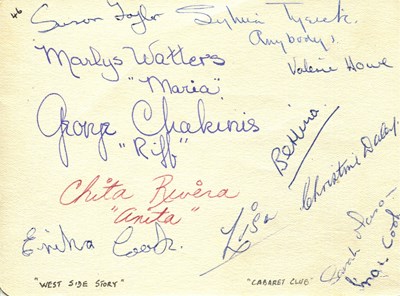 46
Susan Taylor
Sylvia Tysick.
Anybodys.
Valerie Howe
Marlys Watters
"Maria"
George Chakiris
"Riff"
Bettina.
Christine Daley.
Chita Rivera
"Anita"
Lisa
Erika Cook.
Sarah
Cook
"WEST SIDE STORY"
"CABARET CLUB"